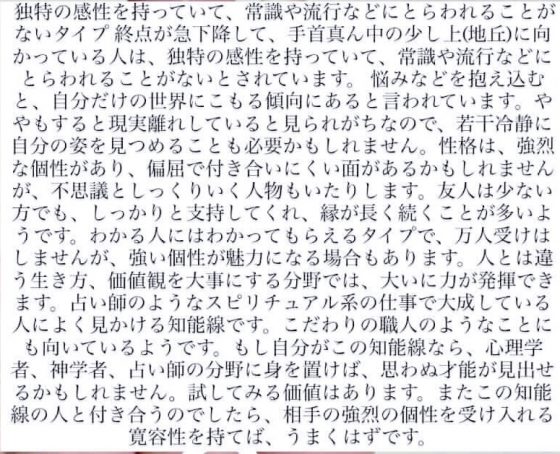 独特の感性を持っていて、常識や流行などにとらわれることが
ないタイプ 終点が急下降して、手首真ん中の少し上(地丘)に向
かっている人は、独特の感性を持っていて、常識や流行などに
とらわれることがないとされています。 悩みなどを抱え込む
と、自分だけの世界にこもる傾向にあると言われています。や
やもすると現実離れしていると見られがちなので、若干冷静に
自分の姿を見つめることも必要かもしれません。性格は、強烈
な個性があり、偏屈で付き合いにくい面があるかもしれません
が、不思議としっくりいく人物もいたりします。友人は少ない
方でも、しっかりと支持してくれ、縁が長く続くことが多いよ
うです。わかる人にはわかってもらえるタイプで、万人受けは
しませんが、強い個性が魅力になる場合もあります。人とは違
う生き方、価値観を大事にする分野では、大いに力が発揮でき
ます。占い師のようなスピリチュアル系の仕事で大成している
人によく見かける知能線です。こだわりの職人のようなことに
も向いているようです。もし自分がこの知能線なら、心理学
者、神学者、占い師の分野に身を置けば、思わぬ才能が見出せ
るかもしれません。試してみる価値はあります。またこの知能
線の人と付き合うのでしたら、相手の強烈の個性を受け入れる
寛容性を持てば、うまくはずです。